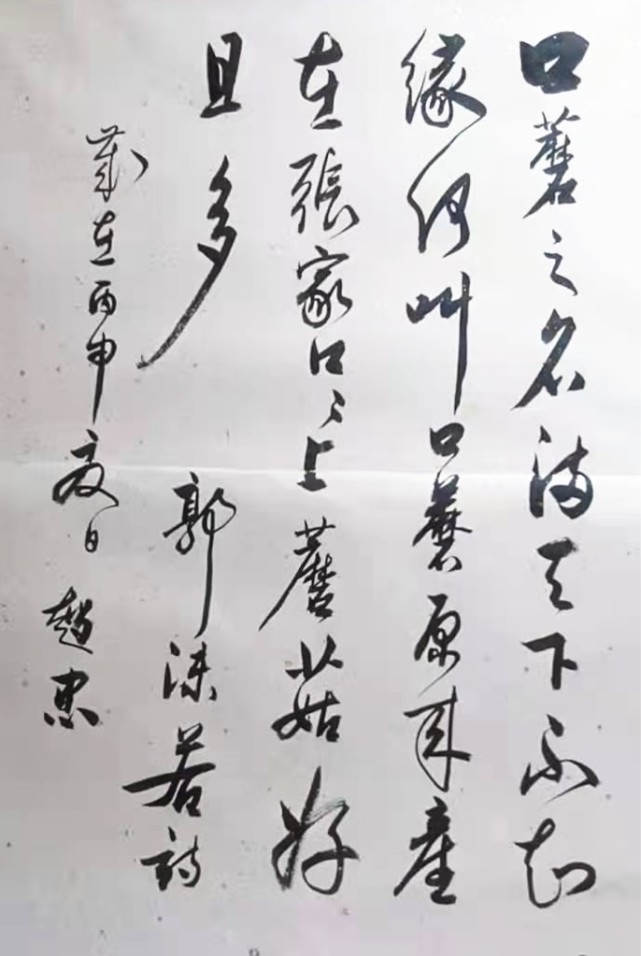 口蘑之名满天下不知
缘何叫口蘑原来產
在張家口々上蘑菇好
且多
郭沫若詩
歲在丙申夏日
趙忠